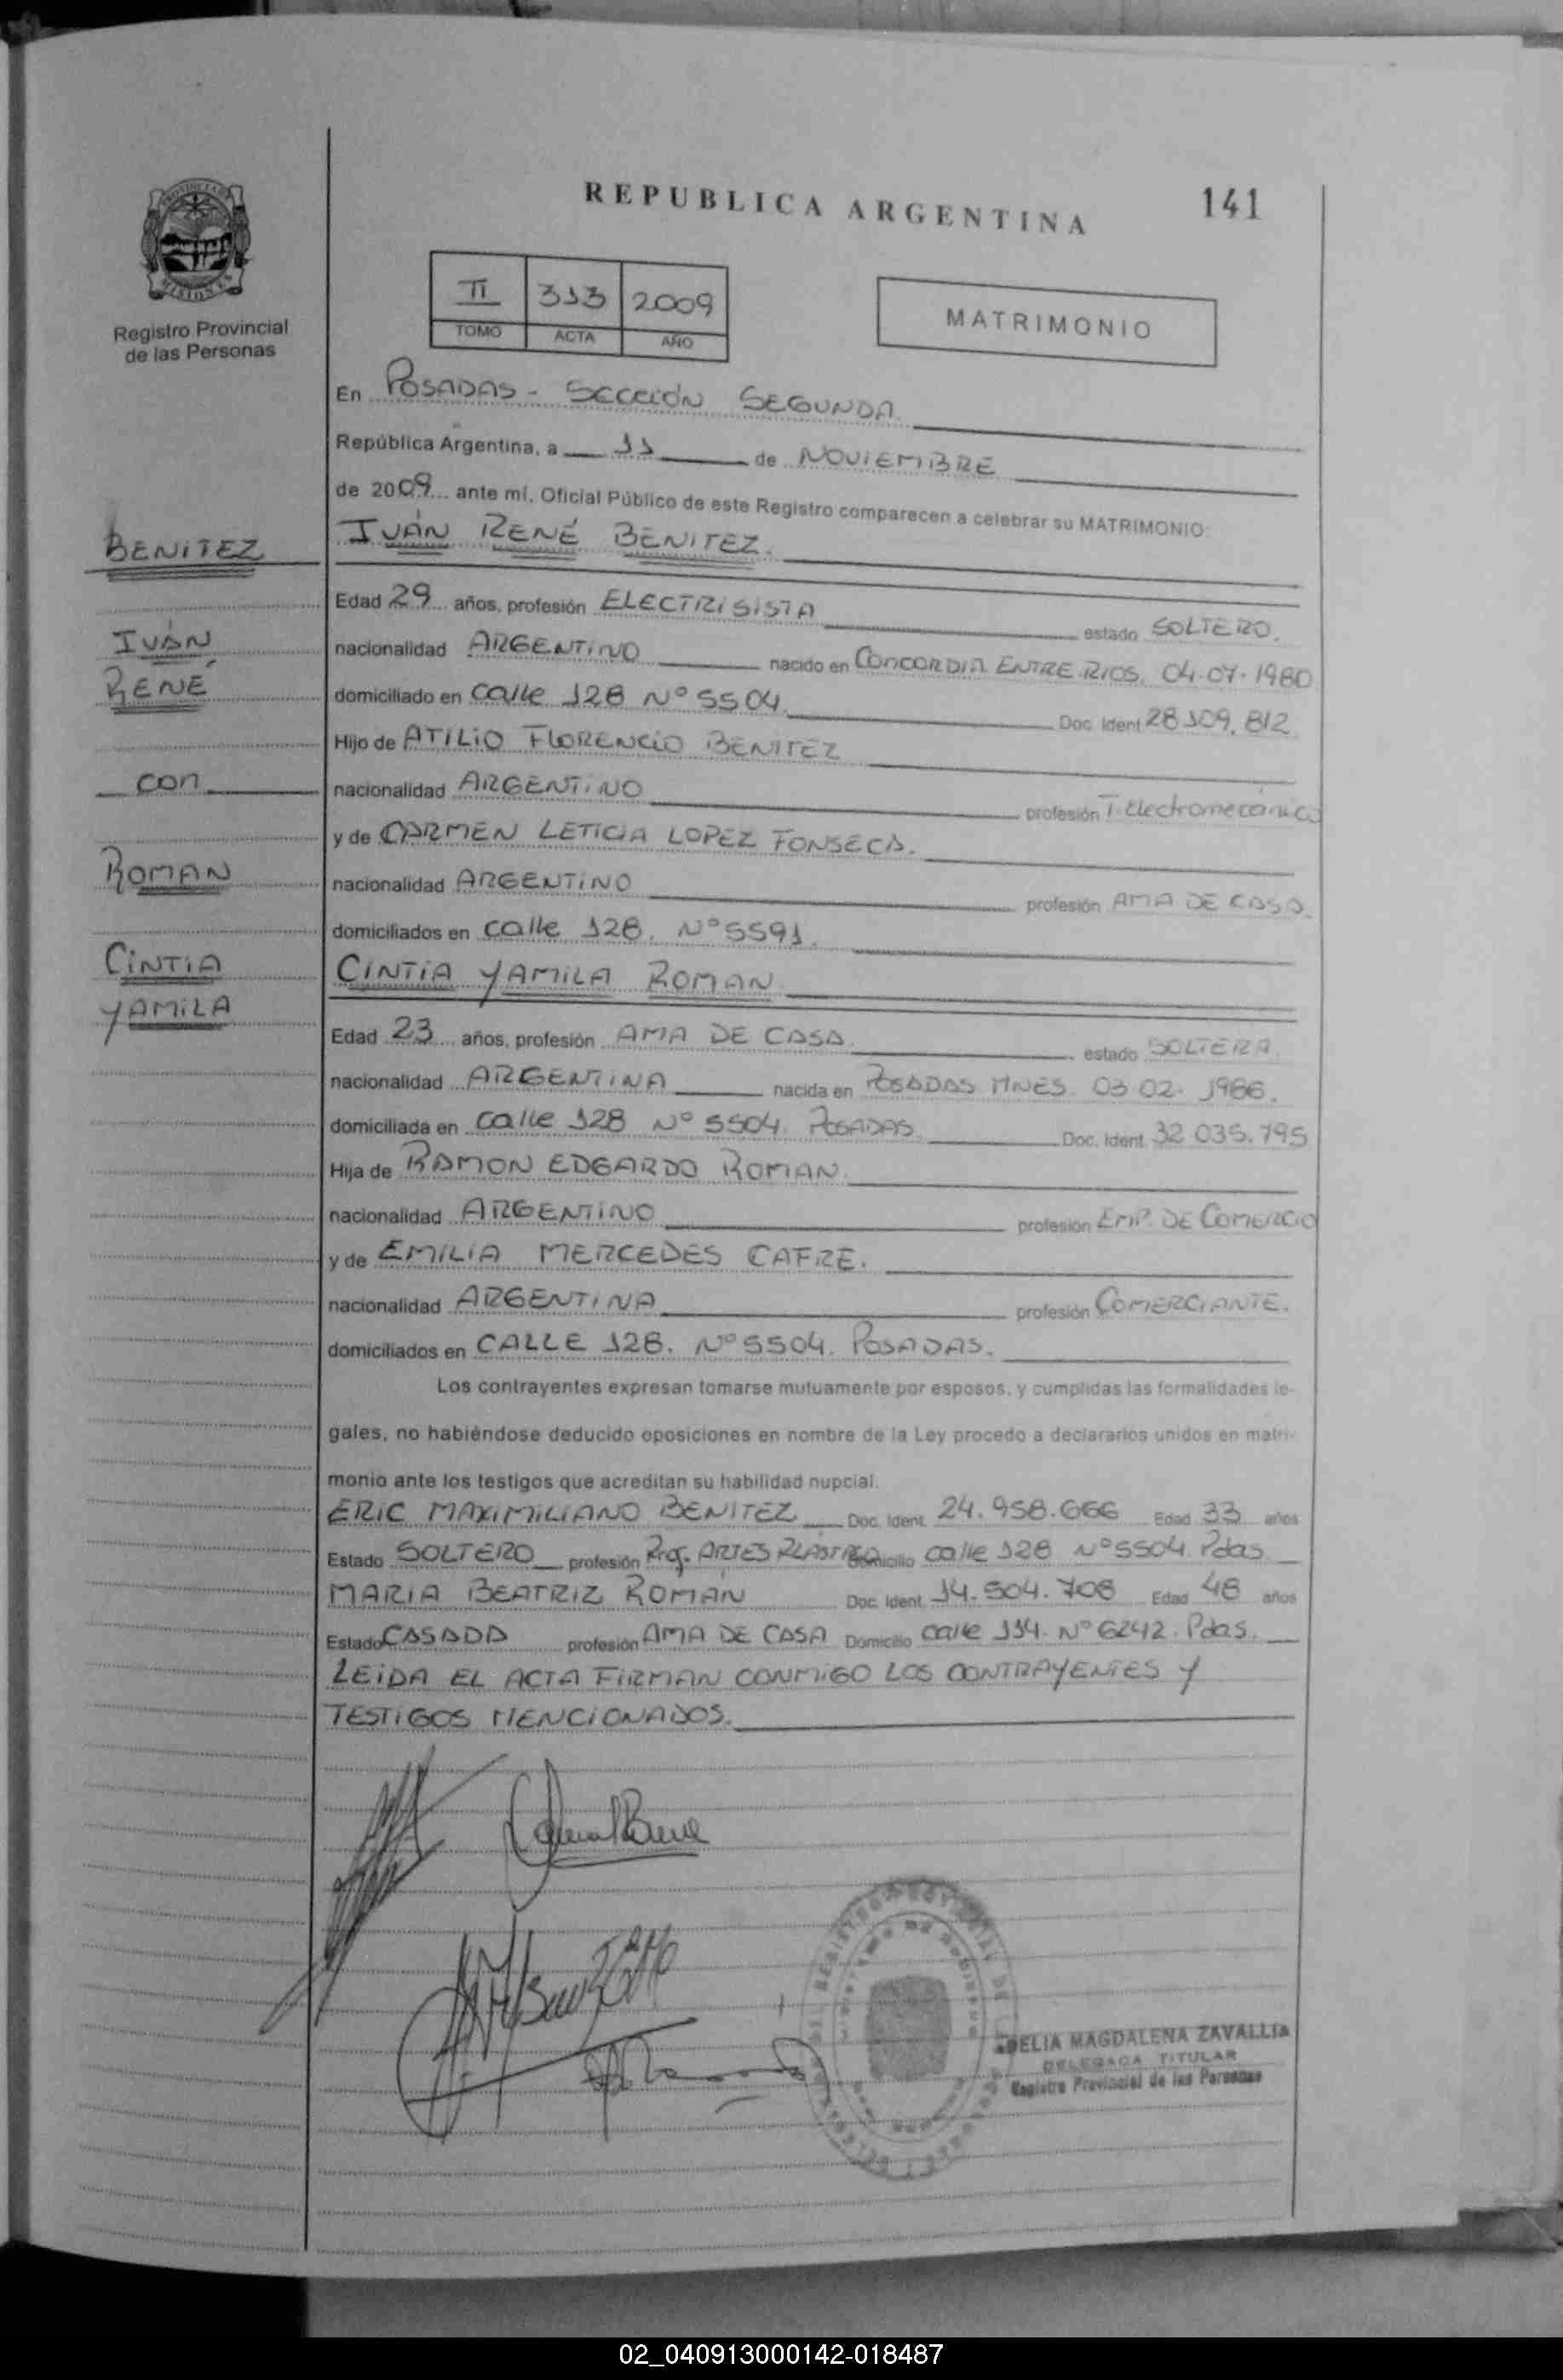 REPUBLICA ARGENTINA
141
PROVINCIA DE
MISIONES
Registro Provincial
de las Personas
II 313 2009
TOMO ACTA AÑO
MATRIMONIO
En POSADAS - SECCIÓN SEGUNDA
República Argentina, a 11 de NOVIEMBRE
de 2009 ante mí, Oficial Público de este Registro comparecen a celebrar su MATRIMONIO:
BENITEZ
IVÁN
RENÉ
con
ROMAN
CINTIA
YAMILA
IVÁN RENÉ BENITEZ.
Edad 29 años, profesión ELECTRISISTA estado SOLTERO.
nacionalidad ARGENTINO nacido en CONCORDIA ENTRE RIOS. 04-07-1980
domiciliado en Calle 128 Nº 5504. Doc. Ident. 28.109.812
Hijo de ATILIO FLORENCIO BENITEZ
nacionalidad ARGENTINO profesión T. Electromecánico
y de CARMEN LETICIA LOPEZ FONSECA.
nacionalidad ARGENTINO profesión AMA DE CASA.
domiciliados en Calle 128. Nº 5591.
CINTIA YAMILA ROMAN
Edad 23 años, profesión AMA DE CASA estado SOLTERA.
nacionalidad ARGENTINA nacida en POSADAS MNES. 03-02-1986.
domiciliada en Calle 128 Nº 5504. POSADAS. Doc. Ident. 32.035.795
Hija de RAMON EDGARDO ROMAN.
nacionalidad ARGENTINO profesión EMP. DE COMERCIO
y de EMILIA MERCEDES CAFRE.
nacionalidad ARGENTINA profesión COMERCIANTE.
domiciliados en CALLE 128. Nº 5504. POSADAS.
Los contrayentes expresan tomarse mutuamente por esposos, y cumplidas las formalidades le-
gales, no habiéndose deducido oposiciones en nombre de la Ley procedo a declararlos unidos en matri-
monio ante los testigos que acreditan su habilidad nupcial.
ERIC MAXIMILIANO BENITEZ Doc. Ident. 24.958.666 Edad 33 años
Estado SOLTERO profesión Prof. ARTES PLASTICA Domicilio Calle 128 Nº 5504. Pdas.
MARIA BEATRIZ ROMAN Doc. Ident. 14.504.708 Edad 48 años
Estado CASADA profesión AMA DE CASA Domicilio Calle 114. Nº 6242. Pdas.
LEIDA EL ACTA FIRMAN CONMIGO LOS CONTRAYENTES Y
TESTIGOS MENCIONADOS.
DELIA MAGDALENA ZAVALLIA
DELEGADA TITULAR
Registro Provincial de las Personas
02_040913000142-018487